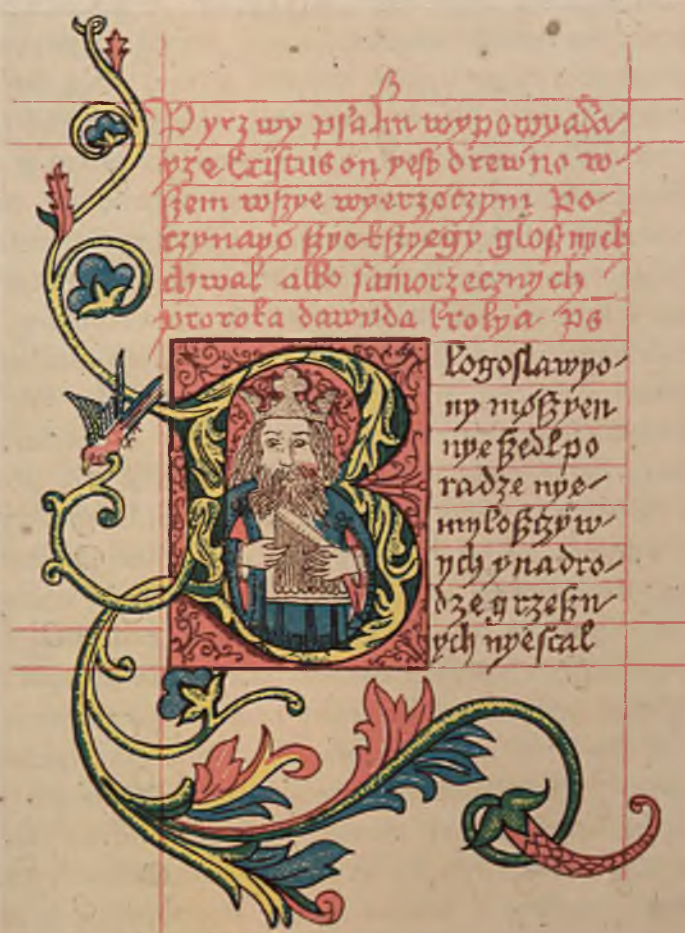 Pyrzwy psalm wypowyada
yze kristus on yest drewno w
szem wszye wyerzoczym Po
czynayo szye kszyegy glosznych
chwal albo samorzecznych
proroka dawyda krolya ps
Blogoslawyo
ny mosz yen
nye szedl po
radze nye
myloszczyw
ych y na dro
dze grzeszn
ych nye stal